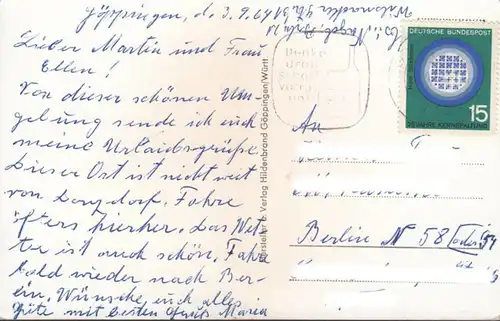 Göppingen, d. 3.9.64
Lieber Martin und Frau
Ellen!
Von dieser schönen Um-
gebung sende ich euch
meine Urlaubsgrüße.
Dieser Ort ist nicht weit
von Lorzdorf. Fahre
öfters hierher. Das Wet-
ter ist auch schön. Fahre
bald wieder nach Ber-
lin. Wünsche euch alles
Gute mit besten Gruß Maria
Hersteller u. Verlag Hildenbrand Göppingen/Württ.
DEUTSCHE BUNDESPOST
15
25 JAHRE KERNSPALTUNG
An
Berlin N 58